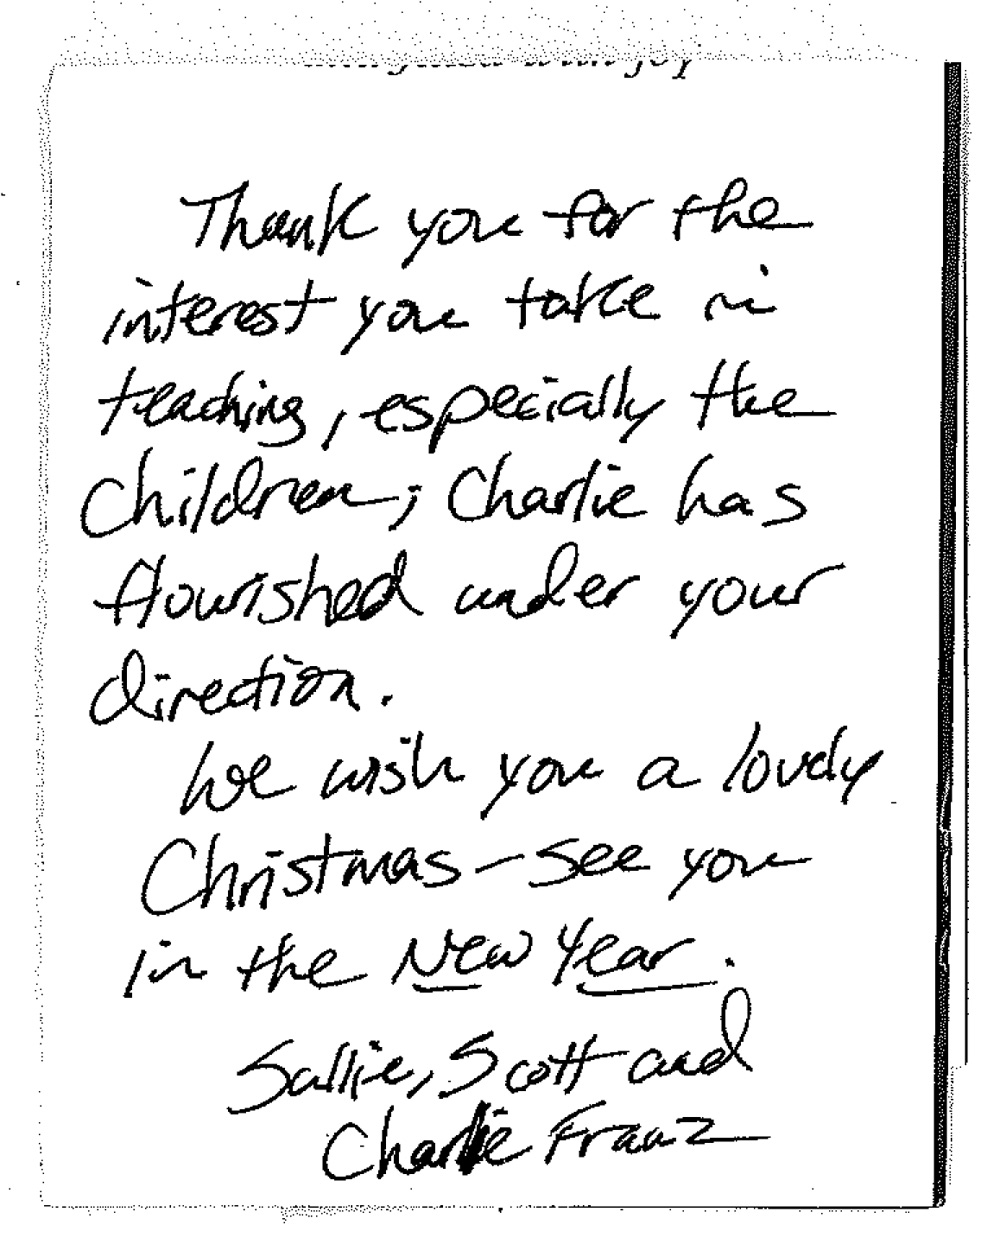 joy
Thank you for the
interest you take in
teaching, especially the
Children; Charlie has
flourished under your
direction.
We wish you a lovely
Christmas - see you
in the New Year.
Sallie, Scott and
Charlie Franz